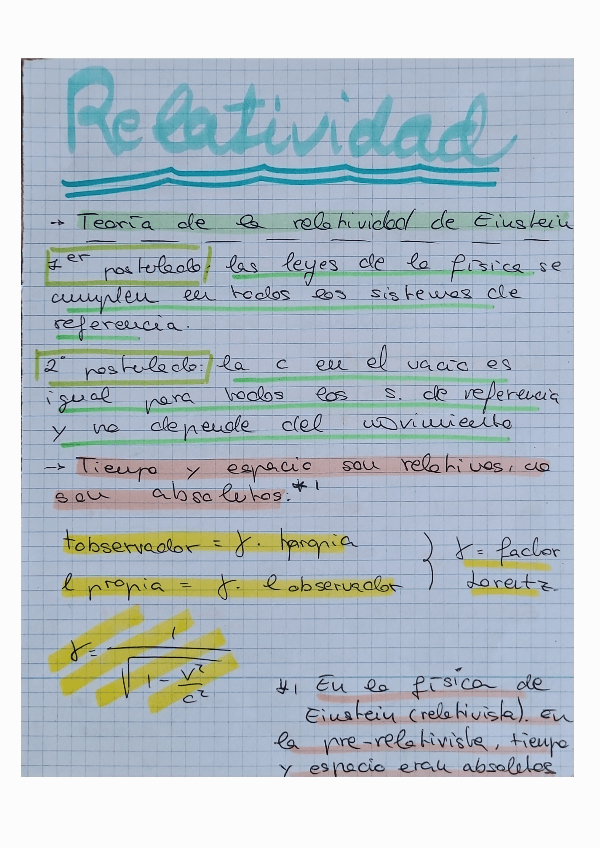 Relatividad
→ Teoría de la relatividad de Einstein
1er postulado: las leyes de la física se
cumplen en todos los sistemas de
referencia.
2º postulado: la c en el vacío es
igual para todos los s. de referencia
y no depende del movimiento
→ Tiempo y espacio son relativos, no
son absolutos. *1
tobservador = γ. tpropia
l propia = γ. l observador
} γ = factor
Lorentz.
γ = 1 / √(1 - v²/c²)
*1 En la física de
Einstein (relativista). En
la pre-relativista, tiempo
y espacio eran absolutos